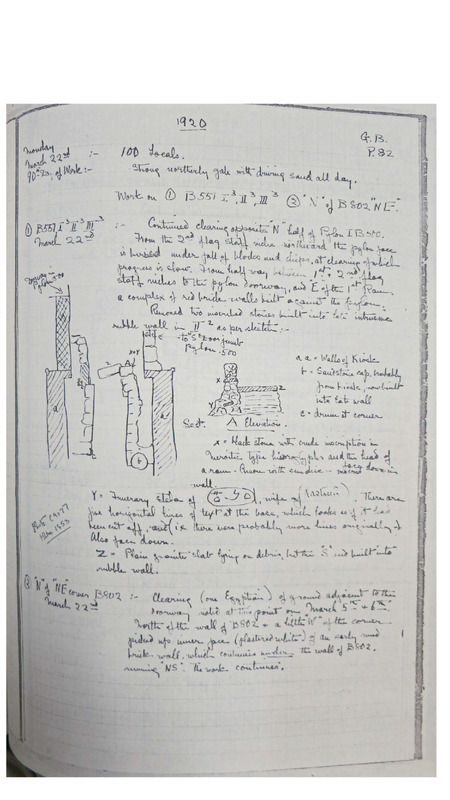 1920
G.B.
P.82
Monday
March 22nd :-
90th Day of Work :-
100 Locals.
Strong northerly gale with driving sand all day.
Work on ① B551 I-3, II-3, III-3 ② "N" of B802 "NE".
① B551 I-3 II-3 III-3
March 22nd
:- Continued clearing opposite "N" half of Pylon I B500.
From the 2nd flag staff niche northward the pylon face
is buried under fall of blocks and chips, at clearing of which
progress is slow. From half way between 1st & 2nd flag
staff niches to the pylon doorway, and E of the 1st
a complex of red brick walls built against the pylon.
Removed two inscribed stones built into late intrusive
rubble wall in II-2 as per sketch :-
to "S" door jamb
Pylon 500
a a = Walls of Kiosk
b = Sandstone cap, probably
from kiosk, now built
into late wall
c = drum at corner
Sect. A Elevation.
x = black stone with crude inscription in
Meroitic type hieroglyphs and the head of
a ram.
wall.
Y = Funerary stela of wife of There are
five horizontal lines of text at the base, which looks as if it has
been cut off, and (i.e. there were probably more lines originally)
Also face down.
Z = Plain granite slab lying on debris, but the "S" end built into
rubble wall.
② "N" of "NE" corner B802 :-
March 22nd
Clearing (one Egyptian) of ground adjacent to this
doorway noted at this point on March 5th & 6th.
North of the wall of B802 & a little "W" of the corner
picked up inner face (plastered white) of an early mud
brick wall, which continues under the wall of B802,
running "NS". The work continues.